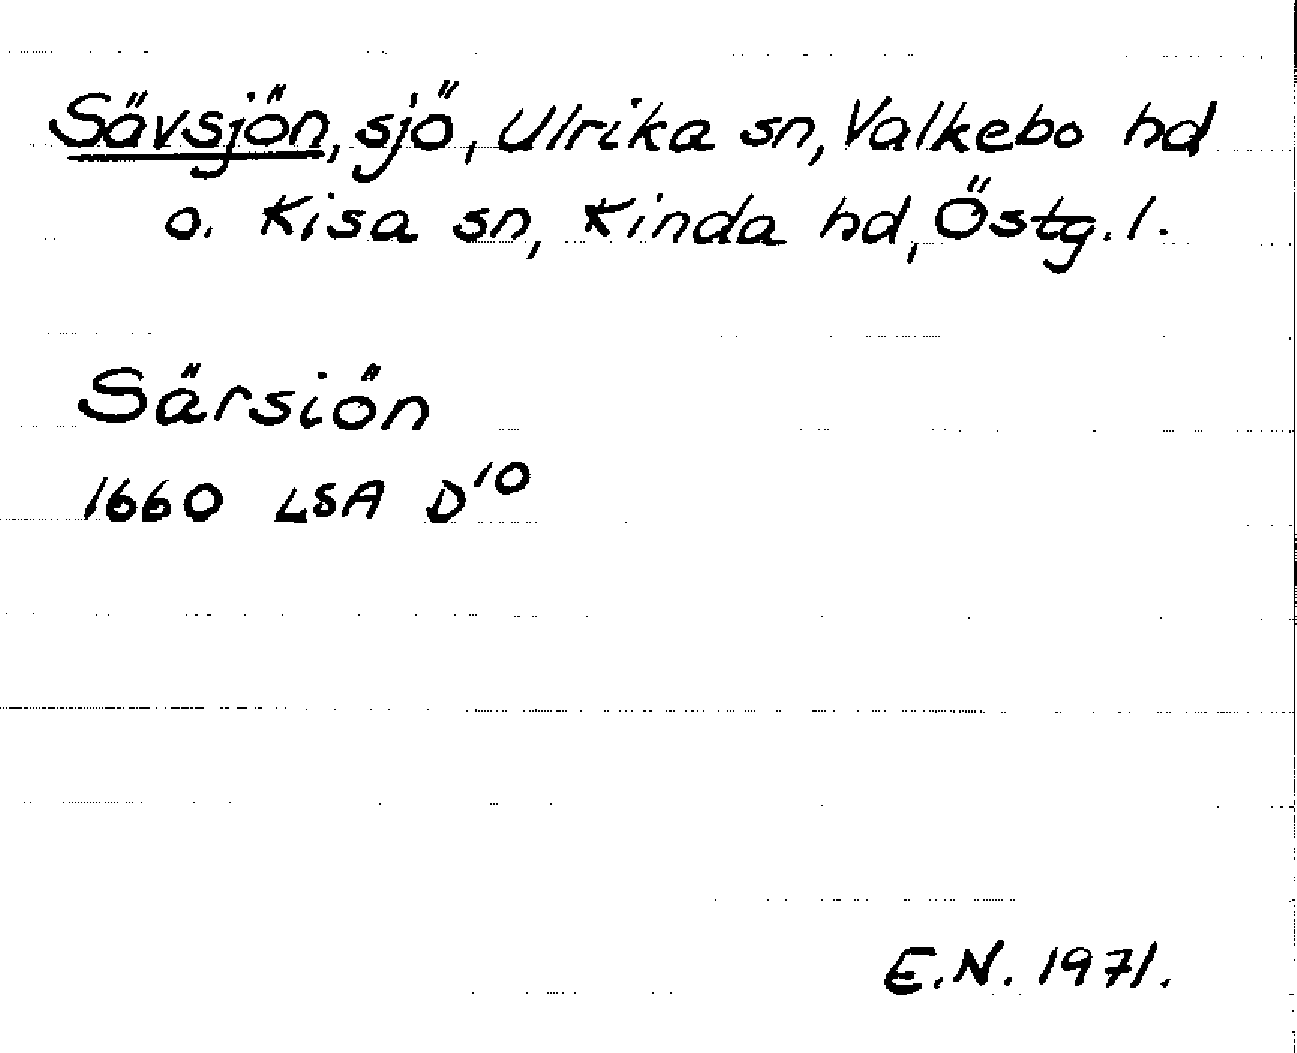 Sävsjön, sjö, Ulrika sn, Valkebo hd
o. Kisa sn, Kinda hd, Östg. l.
Särsiön
1660 LSA D10
E.N. 1971.